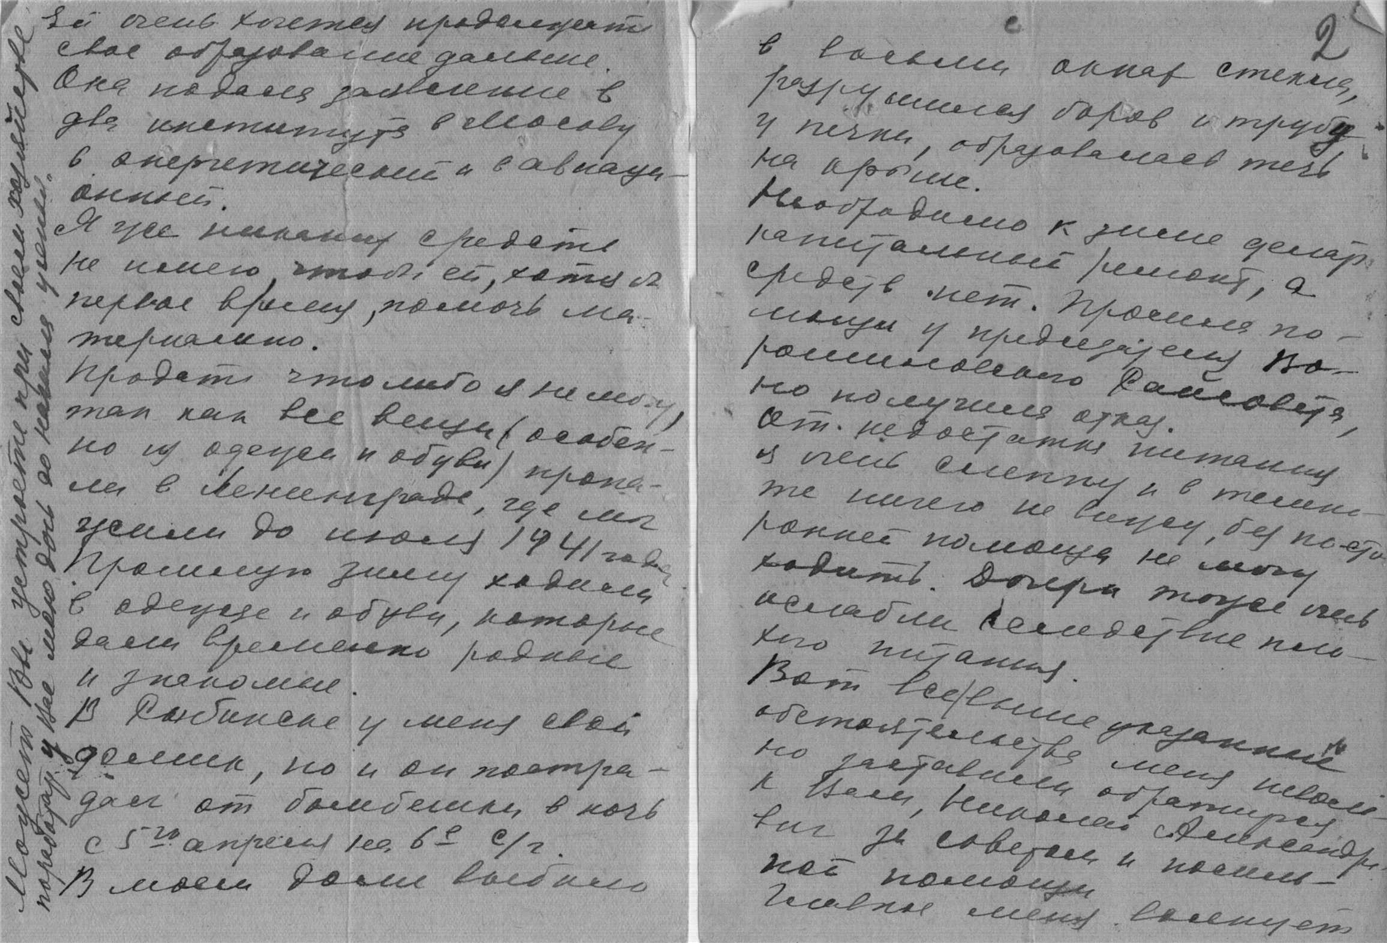 Ей очень хочется продолжать
свое образование дальше.
Она подала заявление в
два института в Москву
в энергетический и в авиаци-
онный.
Я же никаких средств
не имею, чтобы ей, хотя б
первое время, помочь ма-
териально.
Продать что либо я не могу,
так как все вещи (особен-
но из одежи и обуви) пропа-
ли в Ленинграде, где мы
жили до июля 1941 года.
Прошлую зиму ходили
в одежде и обуви, которые
дали временно родные
и знакомые.
В Рыбинске у меня свой
домик, но и он постра-
дал от бомбежки в ночь
с 5го апреля на 6е с/г.
В моем доме выбило
Может Вы устроете при своем хозяйстве
поработать уже мою дочь до начала учения.
2
в восьми окнах стекла,
разрушился боров и трубу
у печки, образовалась течь
на крыше.
Необходимо к зиме делать
капитальный ремонт, а
средств нет. Просила по-
мощи у председателя Во-
рошиловского Райсовета,
но получила отказ.
От недостатка питания
я очень слепну и в темно-
те ничего не вижу, без посто-
ронней помощи не могу
ходить. Дочери тоже очень
ослабли вследствие пло-
хого питания.
Вот все выше указанные
обстоятельства меня неволь-
но заставили обратиться
к Вам, Николай Александро-
вич за советом и посиль-
ной помощи
Главное меня волнует